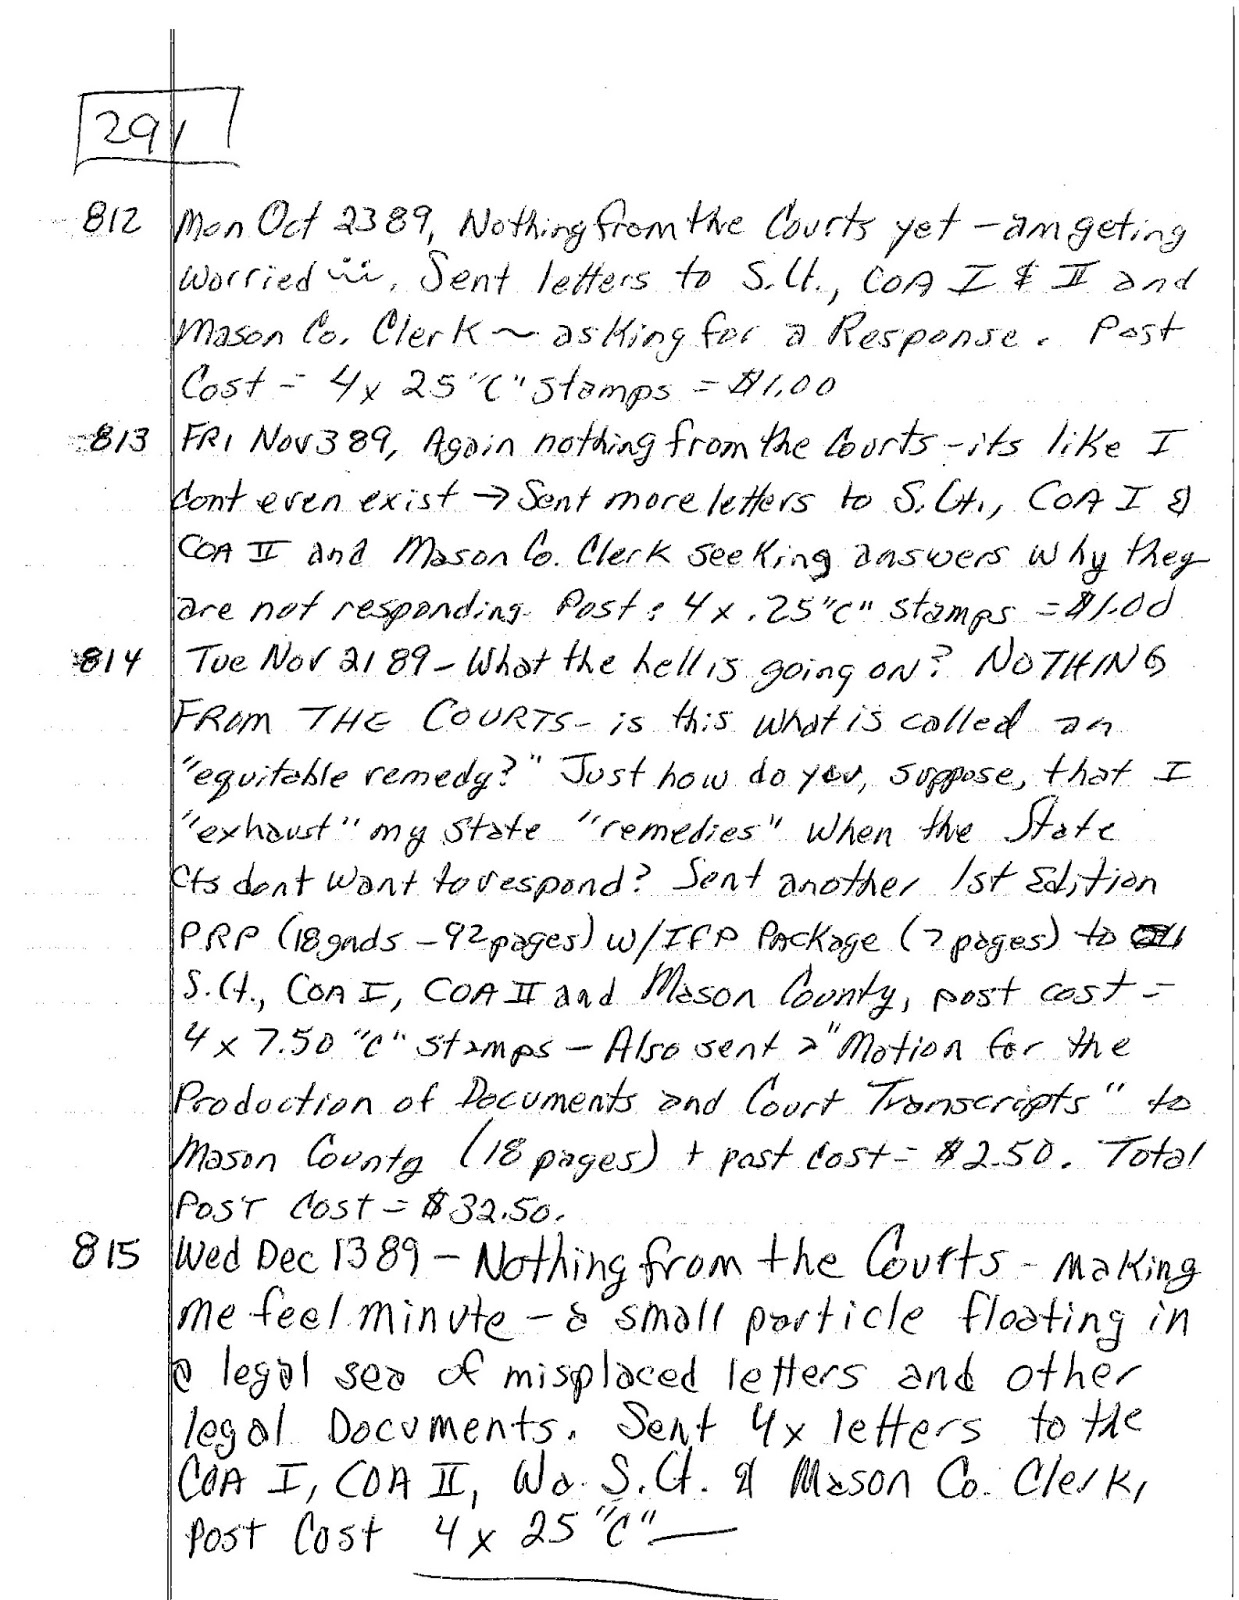 291
812 Mon Oct 23 89, Nothing from the Courts yet - am geting
worried. Sent letters to S.Ct., COA I & II and
Mason Co. Clerk ~ asking for a Response. Post
Cost = 4 x 25 "C" stamps = $1.00
813 FRI Nov 3 89, Again nothing from the Courts - its like I
dont even exist → Sent more letters to S.Ct., COA I &
COA II and Mason Co. Clerk seeking answers why they
are not responding. Post: 4 x .25 "C" stamps = $1.00
814 Tue Nov 21 89 - What the hell is going on? NOTHING
FROM THE COURTS - is this what is called an
"equitable remedy?" Just how do you, suppose, that I
"exhaust" my state "remedies" when the State
Cts dont want to respond? Sent another 1st Edition
PRP (18 gnds - 92 pages) w/IFP Package (7 pages) to
S.Ct., COA I, COA II and Mason County, post cost =
4 x 7.50 "C" stamps - Also sent a "Motion for the
Production of Documents and Court Transcripts" to
Mason County (18 pages) + post cost = $2.50. Total
POST Cost = $32.50.
815 Wed Dec 13 89 - Nothing from the Courts - making
me feel minute - a small particle floating in
a legal sea of misplaced letters and other
legal Documents. Sent 4x letters to the
COA I, COA II, Wa. S.Ct. & Mason Co. Clerk,
Post Cost 4 x 25 "C" —